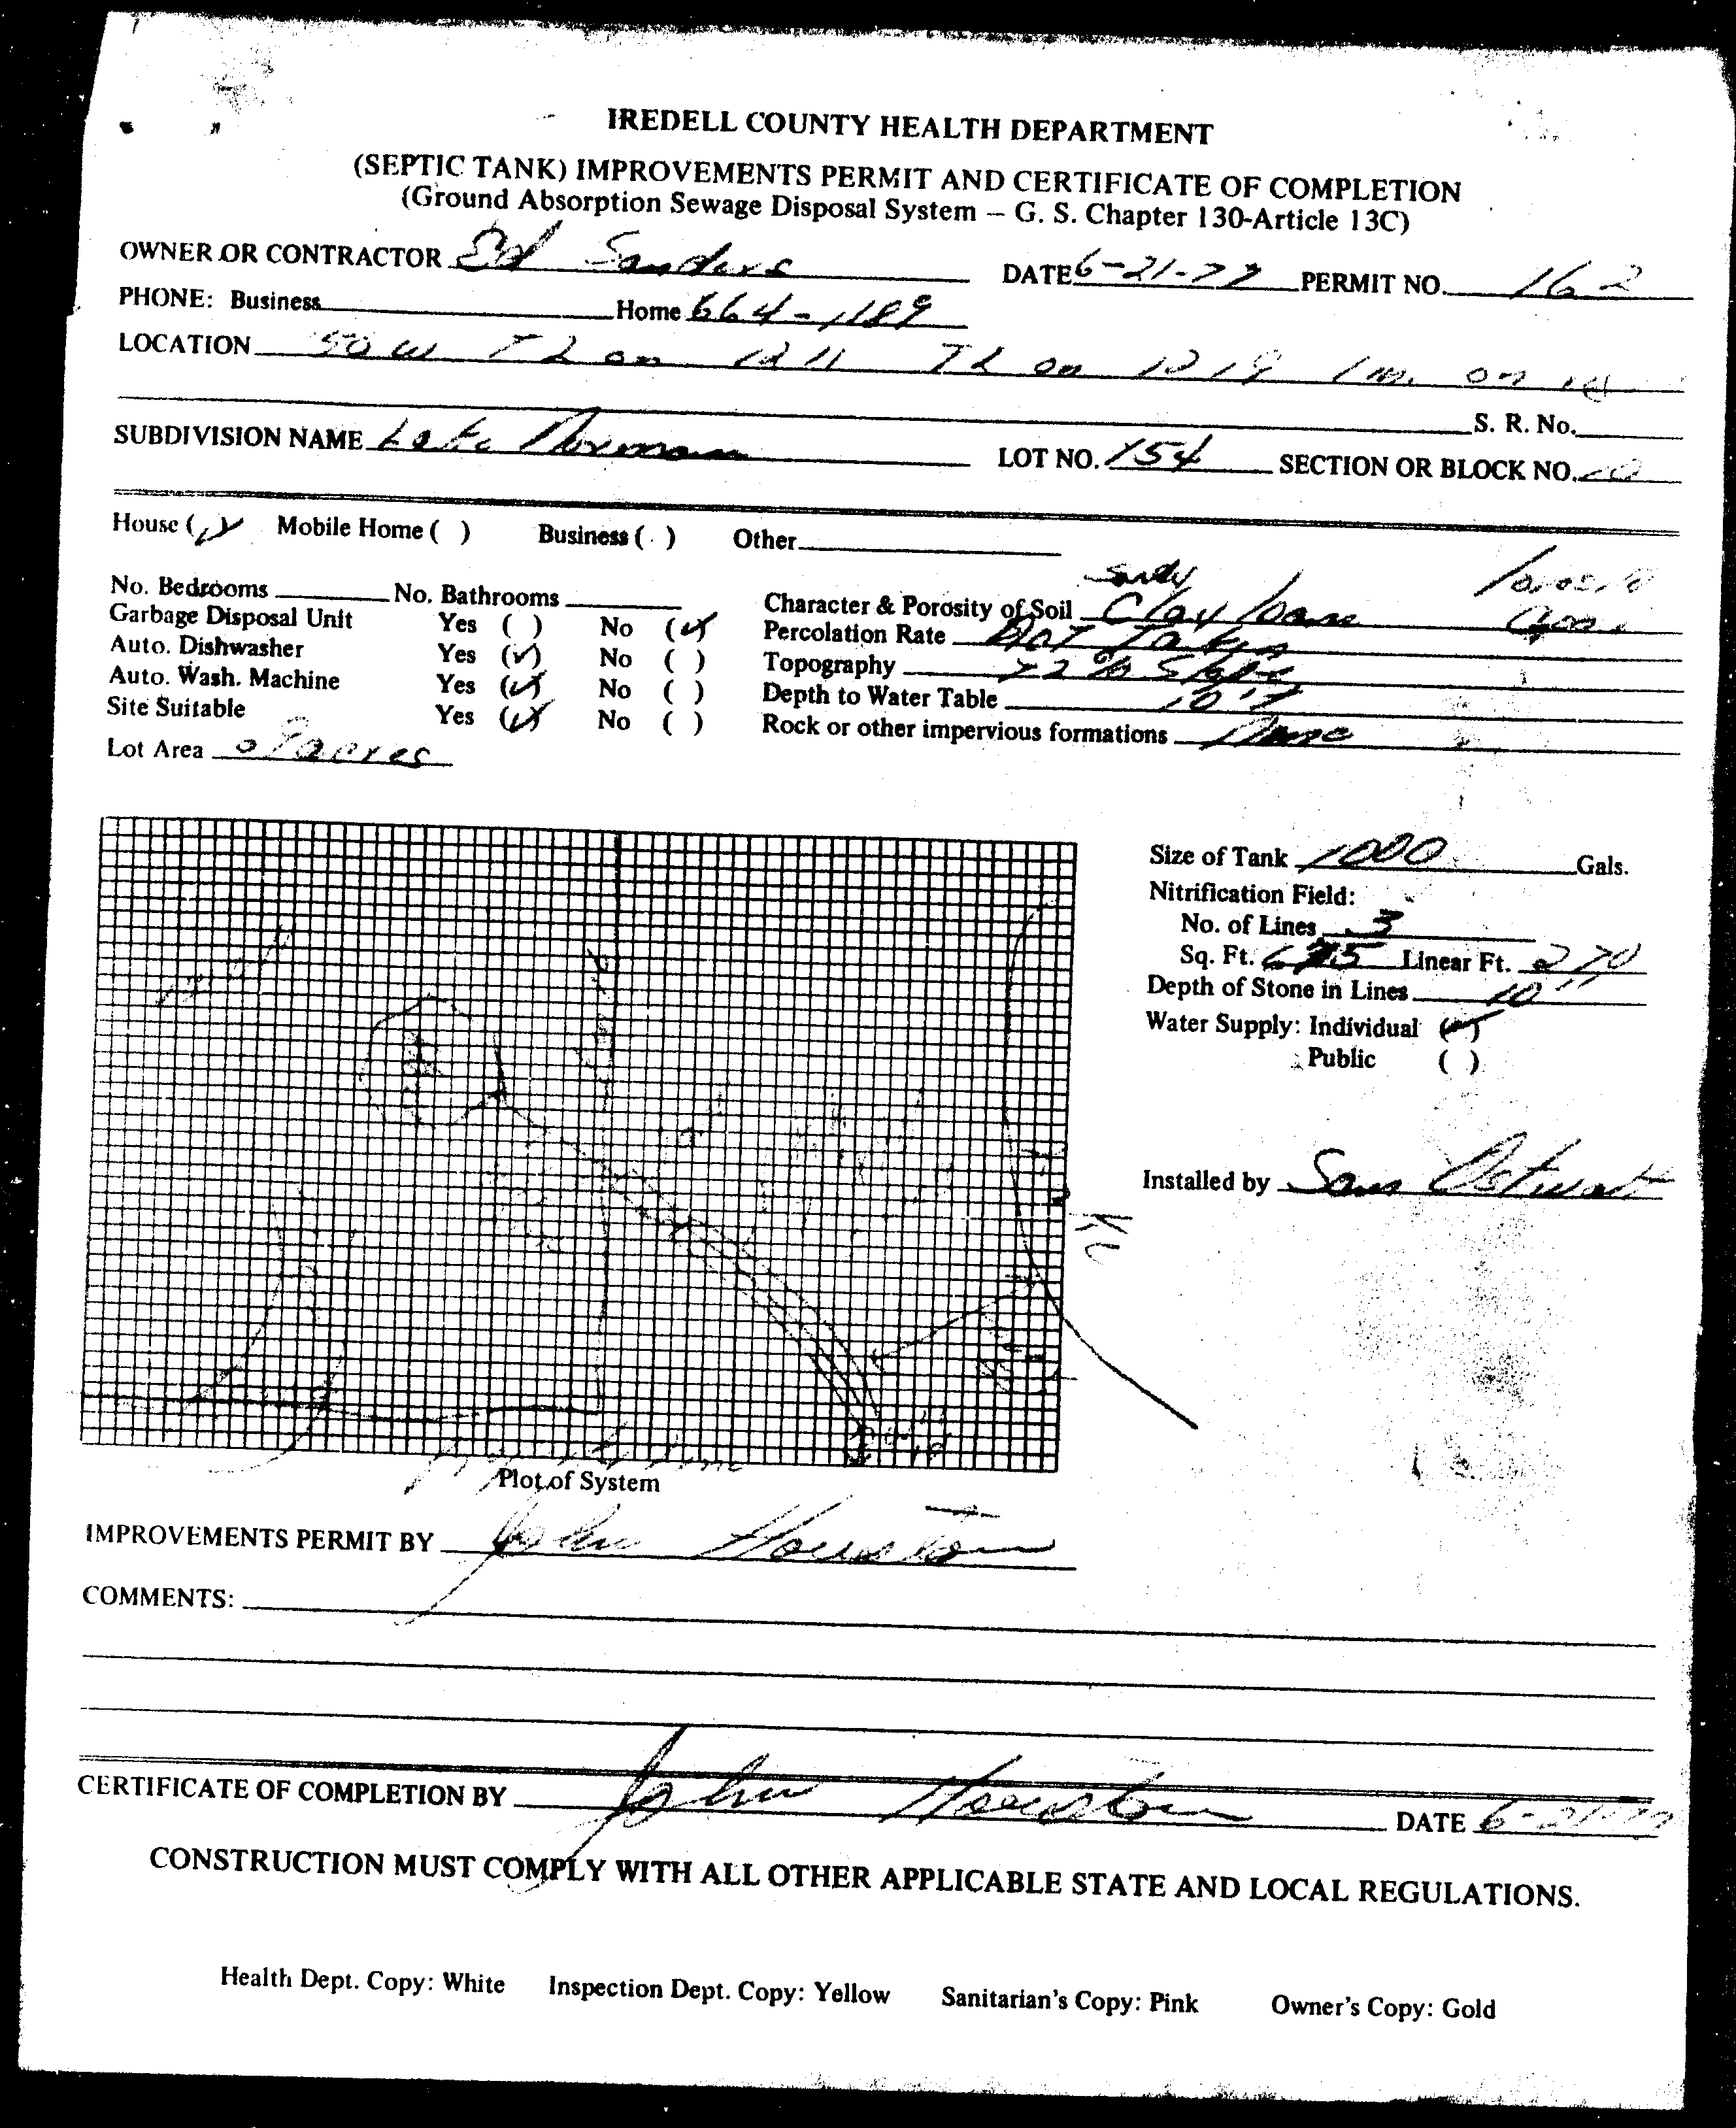 IREDELL COUNTY HEALTH DEPARTMENT
(SEPTIC TANK) IMPROVEMENTS PERMIT AND CERTIFICATE OF COMPLETION
(Ground Absorption Sewage Disposal System – G. S. Chapter 130-Article 13C)
OWNER OR CONTRACTOR Ed Sanders DATE 6-21-77 PERMIT NO. 162
PHONE: Business Home 664-1189
LOCATION 50 W TL on 1211 TL on 1219 1 m. on
S. R. No.
SUBDIVISION NAME Lake Norman LOT NO. 154 SECTION OR BLOCK NO.
House (✓) Mobile Home ( ) Business ( ) Other
Sandy
No. Bedrooms No. Bathrooms Character & Porosity of Soil Clay loam
Garbage Disposal Unit Yes ( ) No (✓) Percolation Rate Not Taken
Auto. Dishwasher Yes (✓) No ( ) Topography 72% Slope
Auto. Wash. Machine Yes (✓) No ( ) Depth to Water Table 10'+
Site Suitable Yes (✓) No ( ) Rock or other impervious formations None
Lot Area acres
Size of Tank 1000 Gals.
Nitrification Field:
No. of Lines 3
Sq. Ft. 675 Linear Ft. 270
Depth of Stone in Lines 10"
Water Supply: Individual (✓)
Public ( )
Installed by Sam Ostwalt
Plot of System
IMPROVEMENTS PERMIT BY John Houston
COMMENTS:
CERTIFICATE OF COMPLETION BY John Houston DATE 6-21-77
CONSTRUCTION MUST COMPLY WITH ALL OTHER APPLICABLE STATE AND LOCAL REGULATIONS.
Health Dept. Copy: White Inspection Dept. Copy: Yellow Sanitarian's Copy: Pink Owner's Copy: Gold